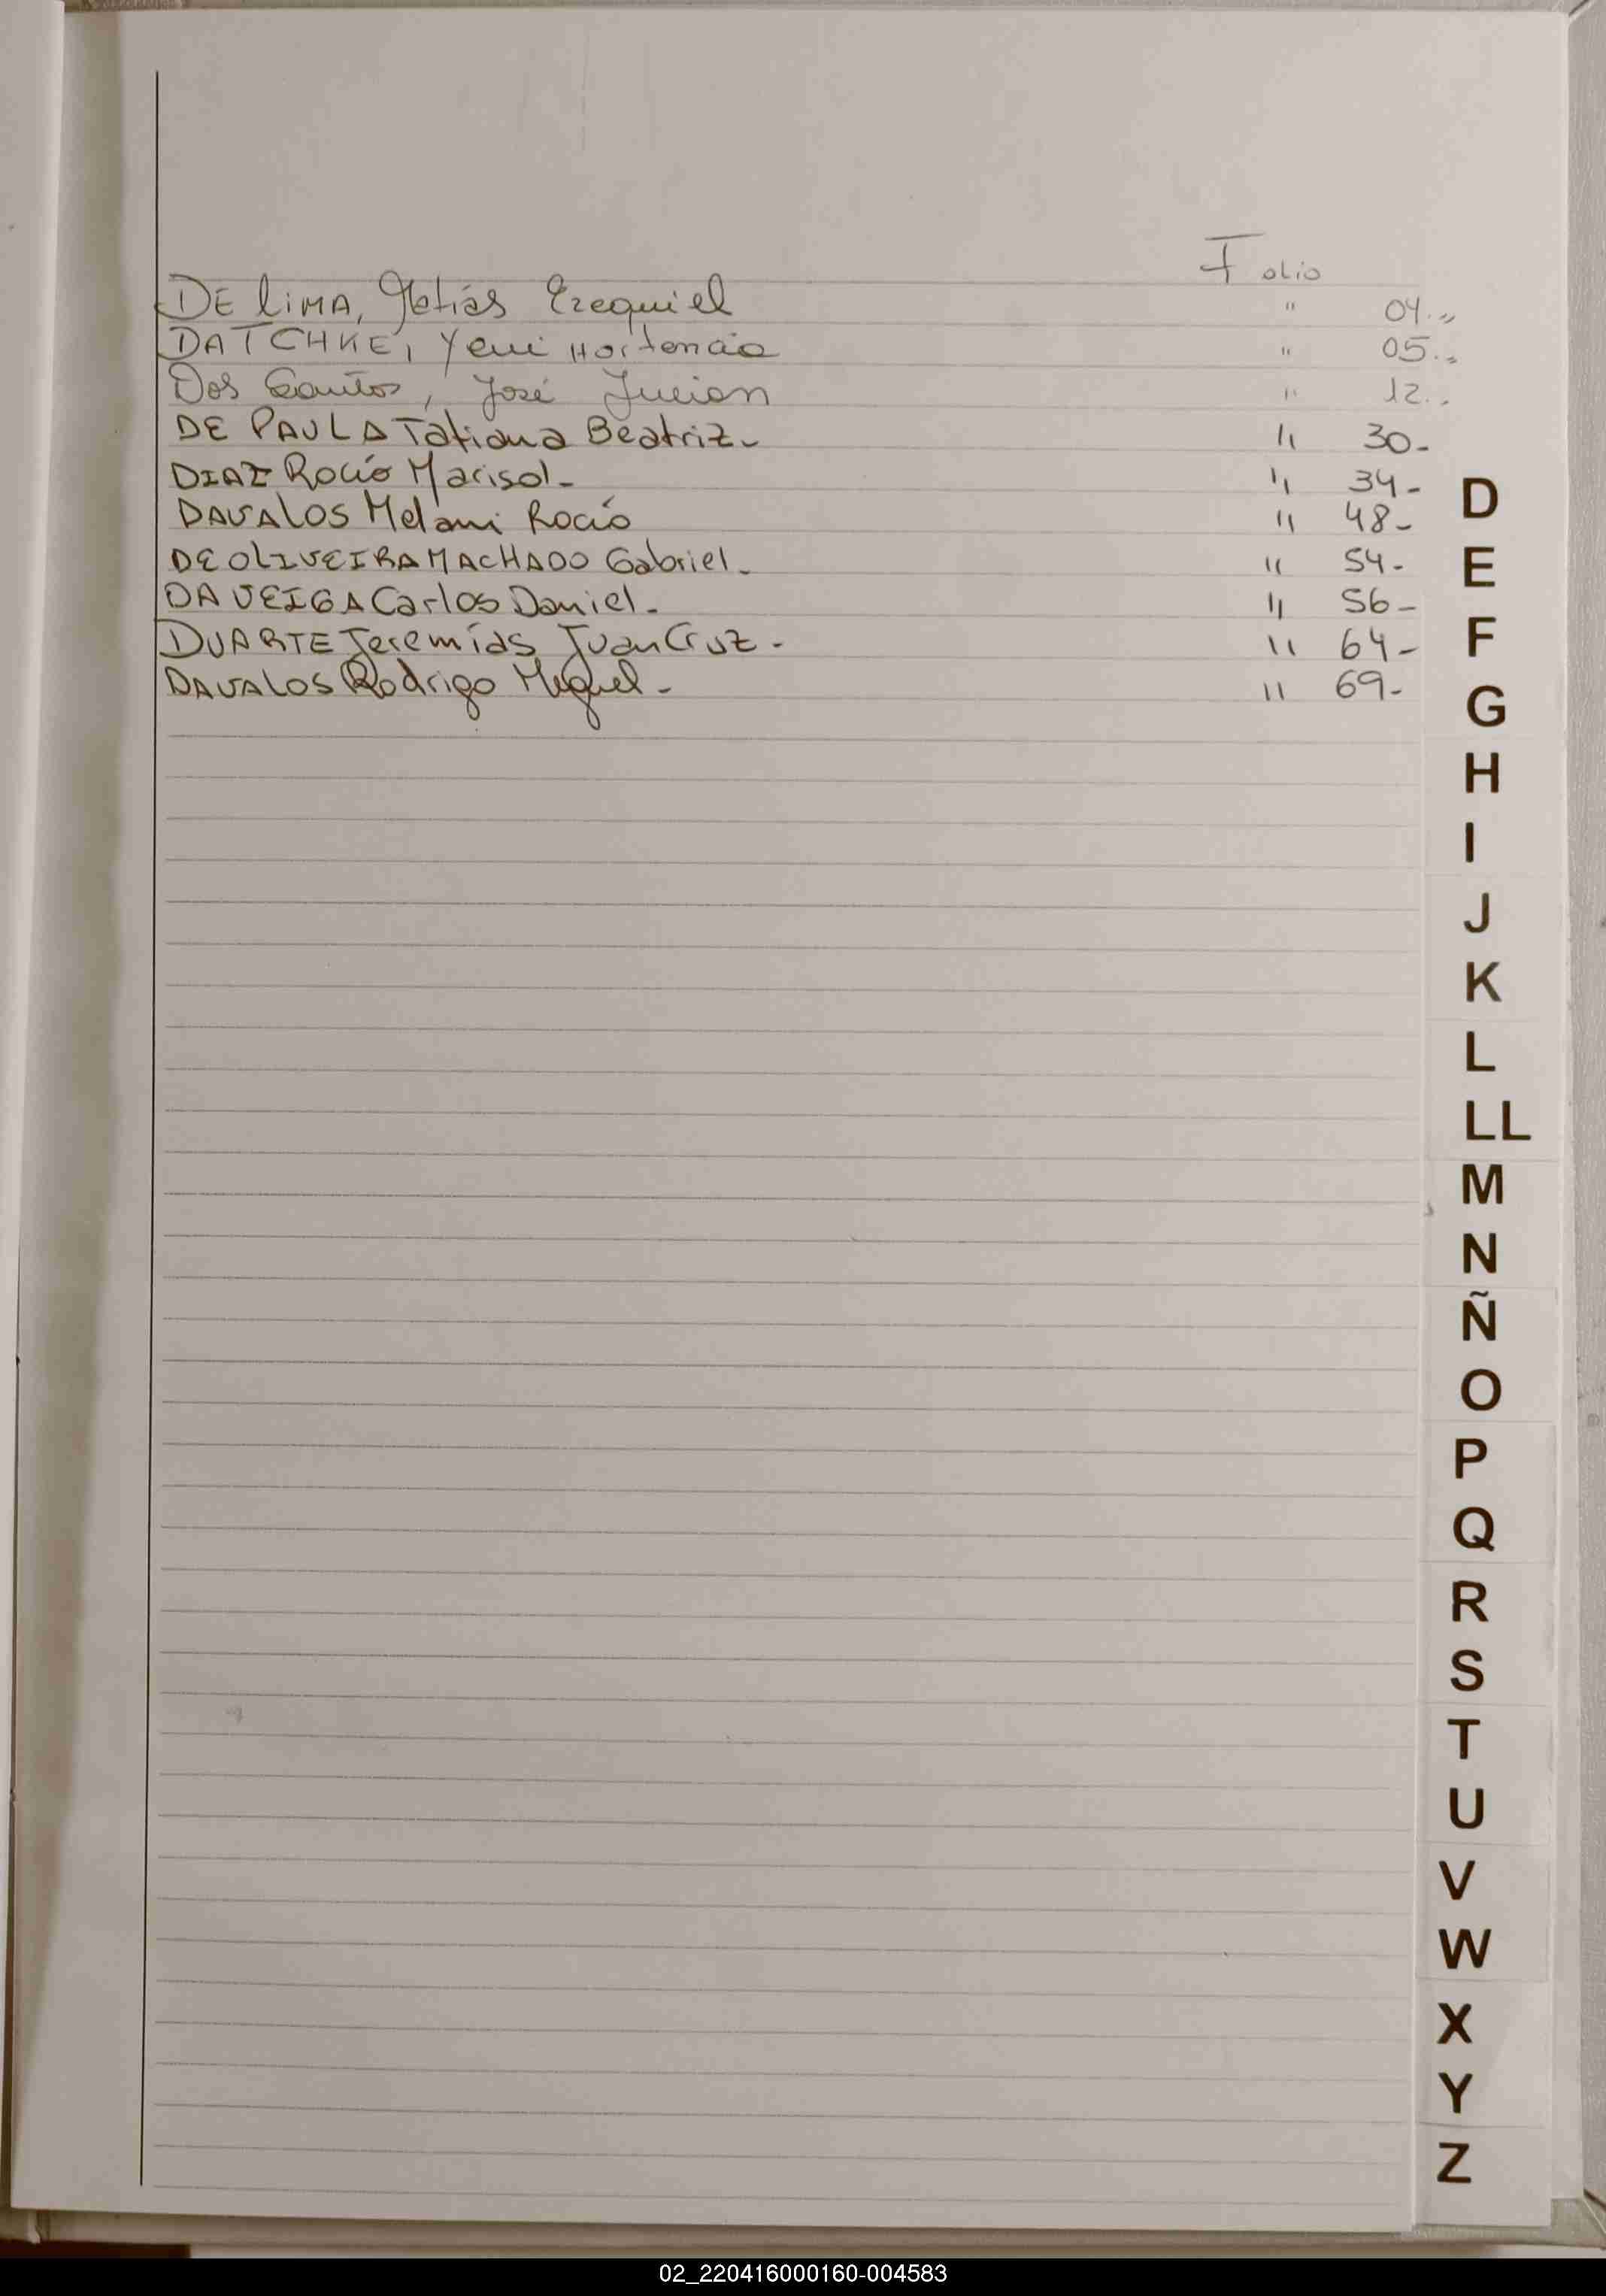 Folio
DE liMA, Matías Ezequiel " 04.,,
DATCHKE, Yeni Hortencia " 05.,,
Dos Santos, José Lucian " 12.,
DE PAULA Tatiana Beatriz- " 30-
DIAZ Rocío Marisol- " 34-
DAVALOS Melani Rocío " 48-
DE OLIVEIRA MACHADO Gabriel- " 54-
DA VEIGA Carlos Daniel- " 56-
DUARTE Jeremías Juan Cruz- " 64-
DAVALOS Rodrigo Miguel- " 69-
D
E
F
G
H
I
J
K
L
LL
M
N
Ñ
O
P
Q
R
S
T
U
V
W
X
Y
Z
02_220416000160-004583